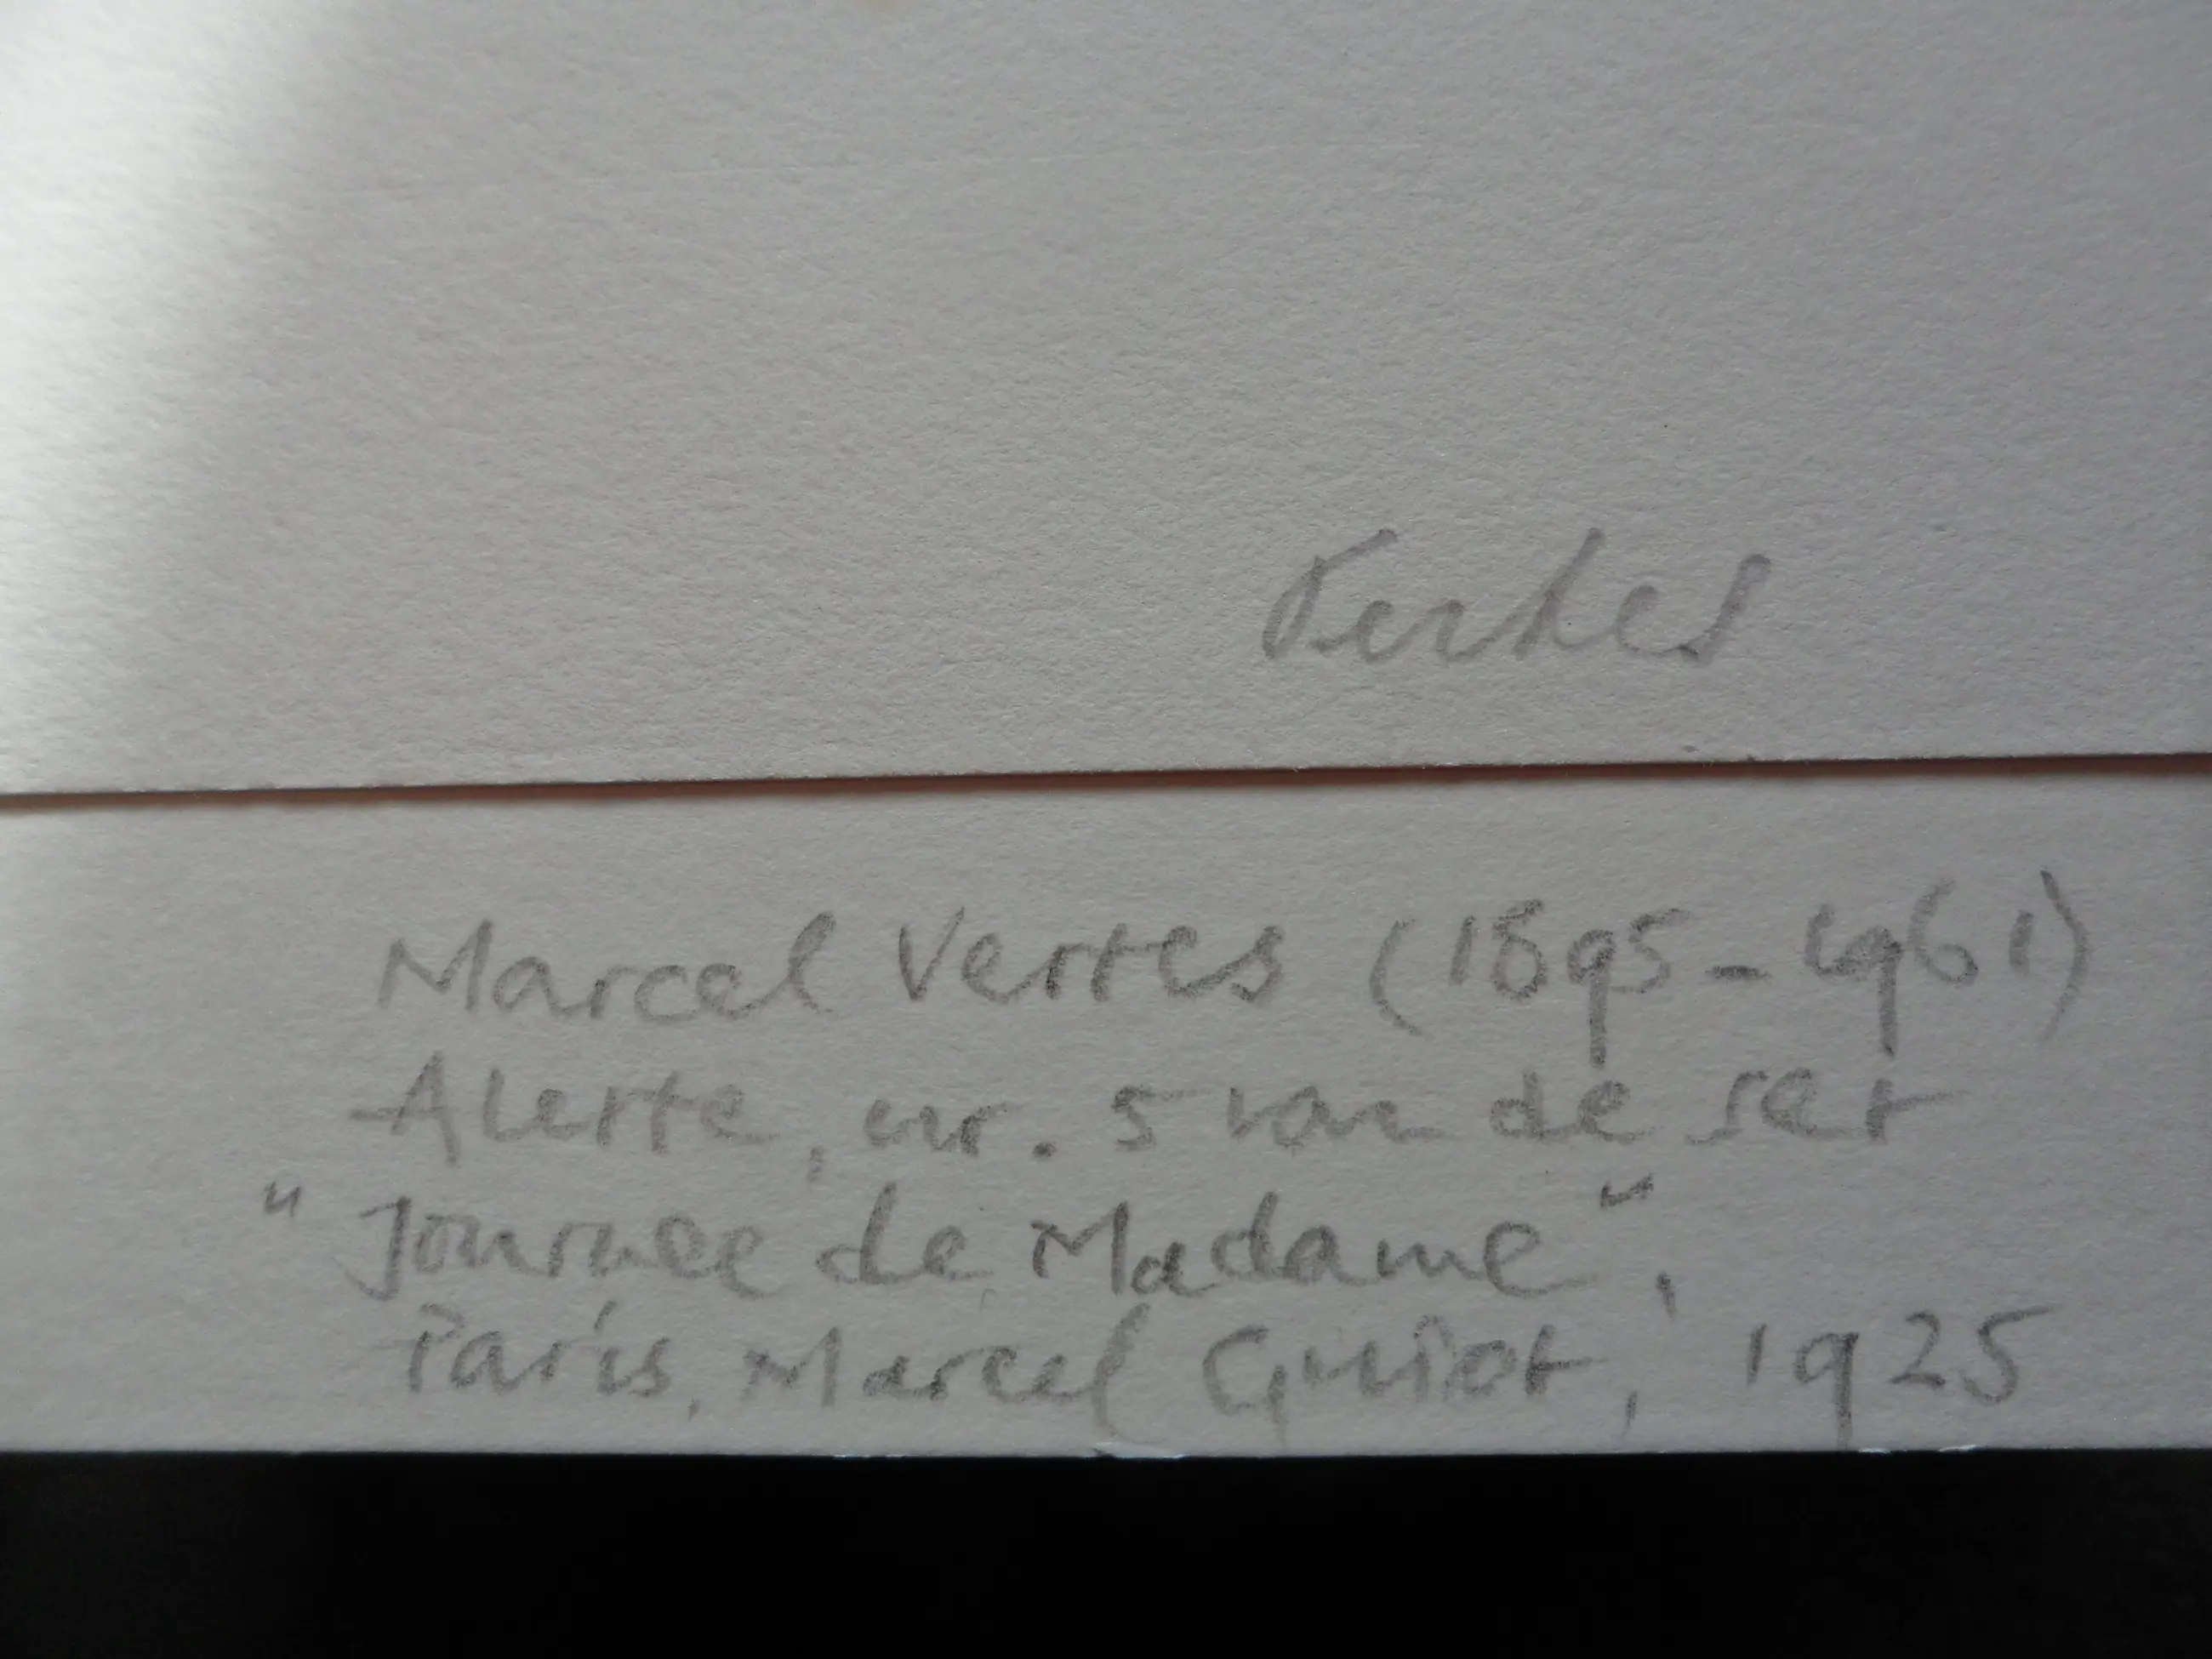 Vertes
Marcel Vertes (1895-1961)
Alerte, nr. 5 van de set
"Journee de Madame",
Paris, Marcel Guiot, 1925